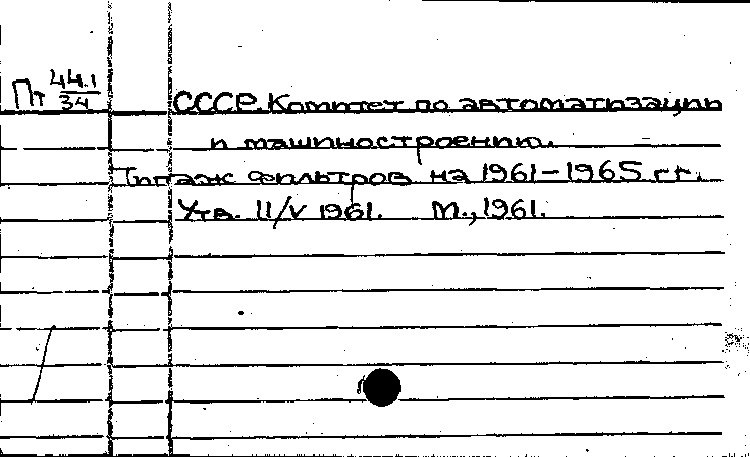 Пт 44.1/34
СССР. Комитет по автоматизации
и машиностроению.
Типаж фильтров на 1961-1965 гг.
Утв. 11/V 1961. М., 1961.